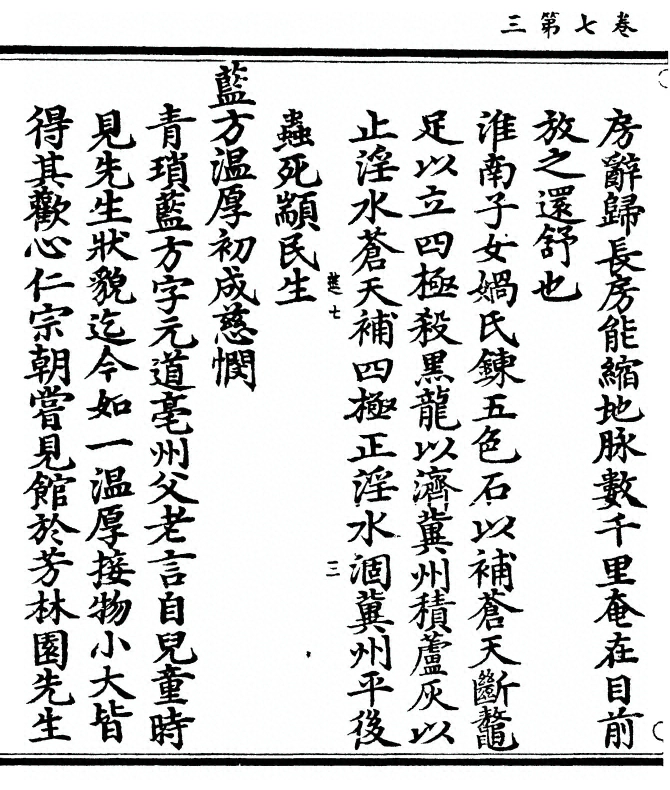 卷七第三
房辭歸長房能縮地脉數千里奄在目前
放之還舒也
淮南子女媧氏鍊五色石以補蒼天斷鼇
足以立四極殺黑龍以濟冀州積蘆灰以
止淫水蒼天補四極正淫水涸冀州平後
三
蟲死顓民生
藍方温厚初成慈憫
青瑣藍方字元道亳州父老言自兒童時
見先生狀貌迄今如一温厚接物小大皆
得其歡心仁宗朝嘗見館於芳林園先生